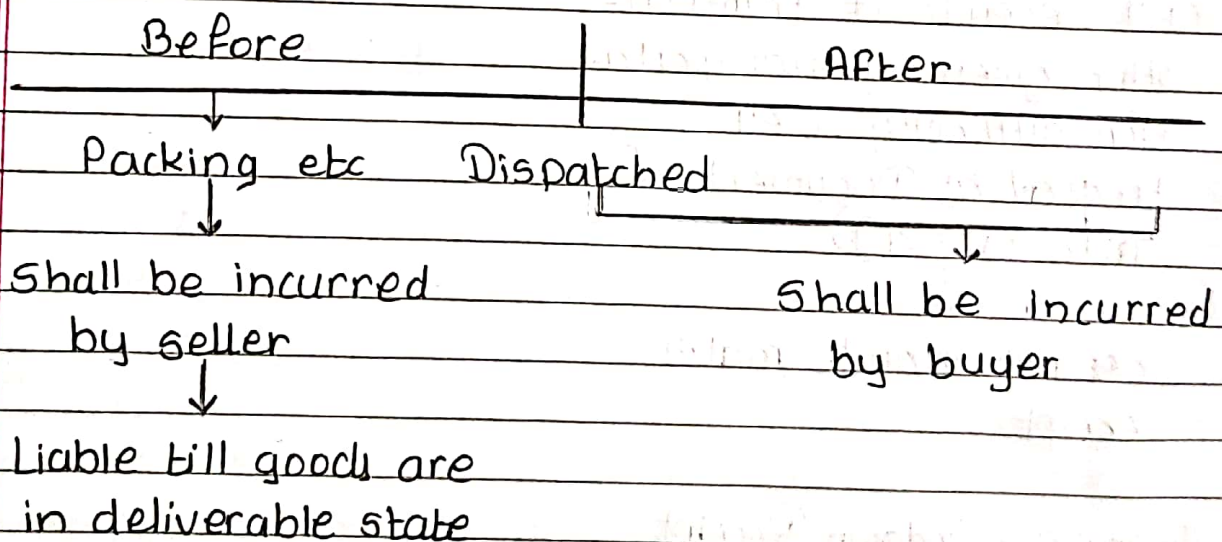 Before
After
Packing etc Dispatched
Shall be incurred
by seller
Shall be incurred
by buyer
Liable till goods are
in deliverable state